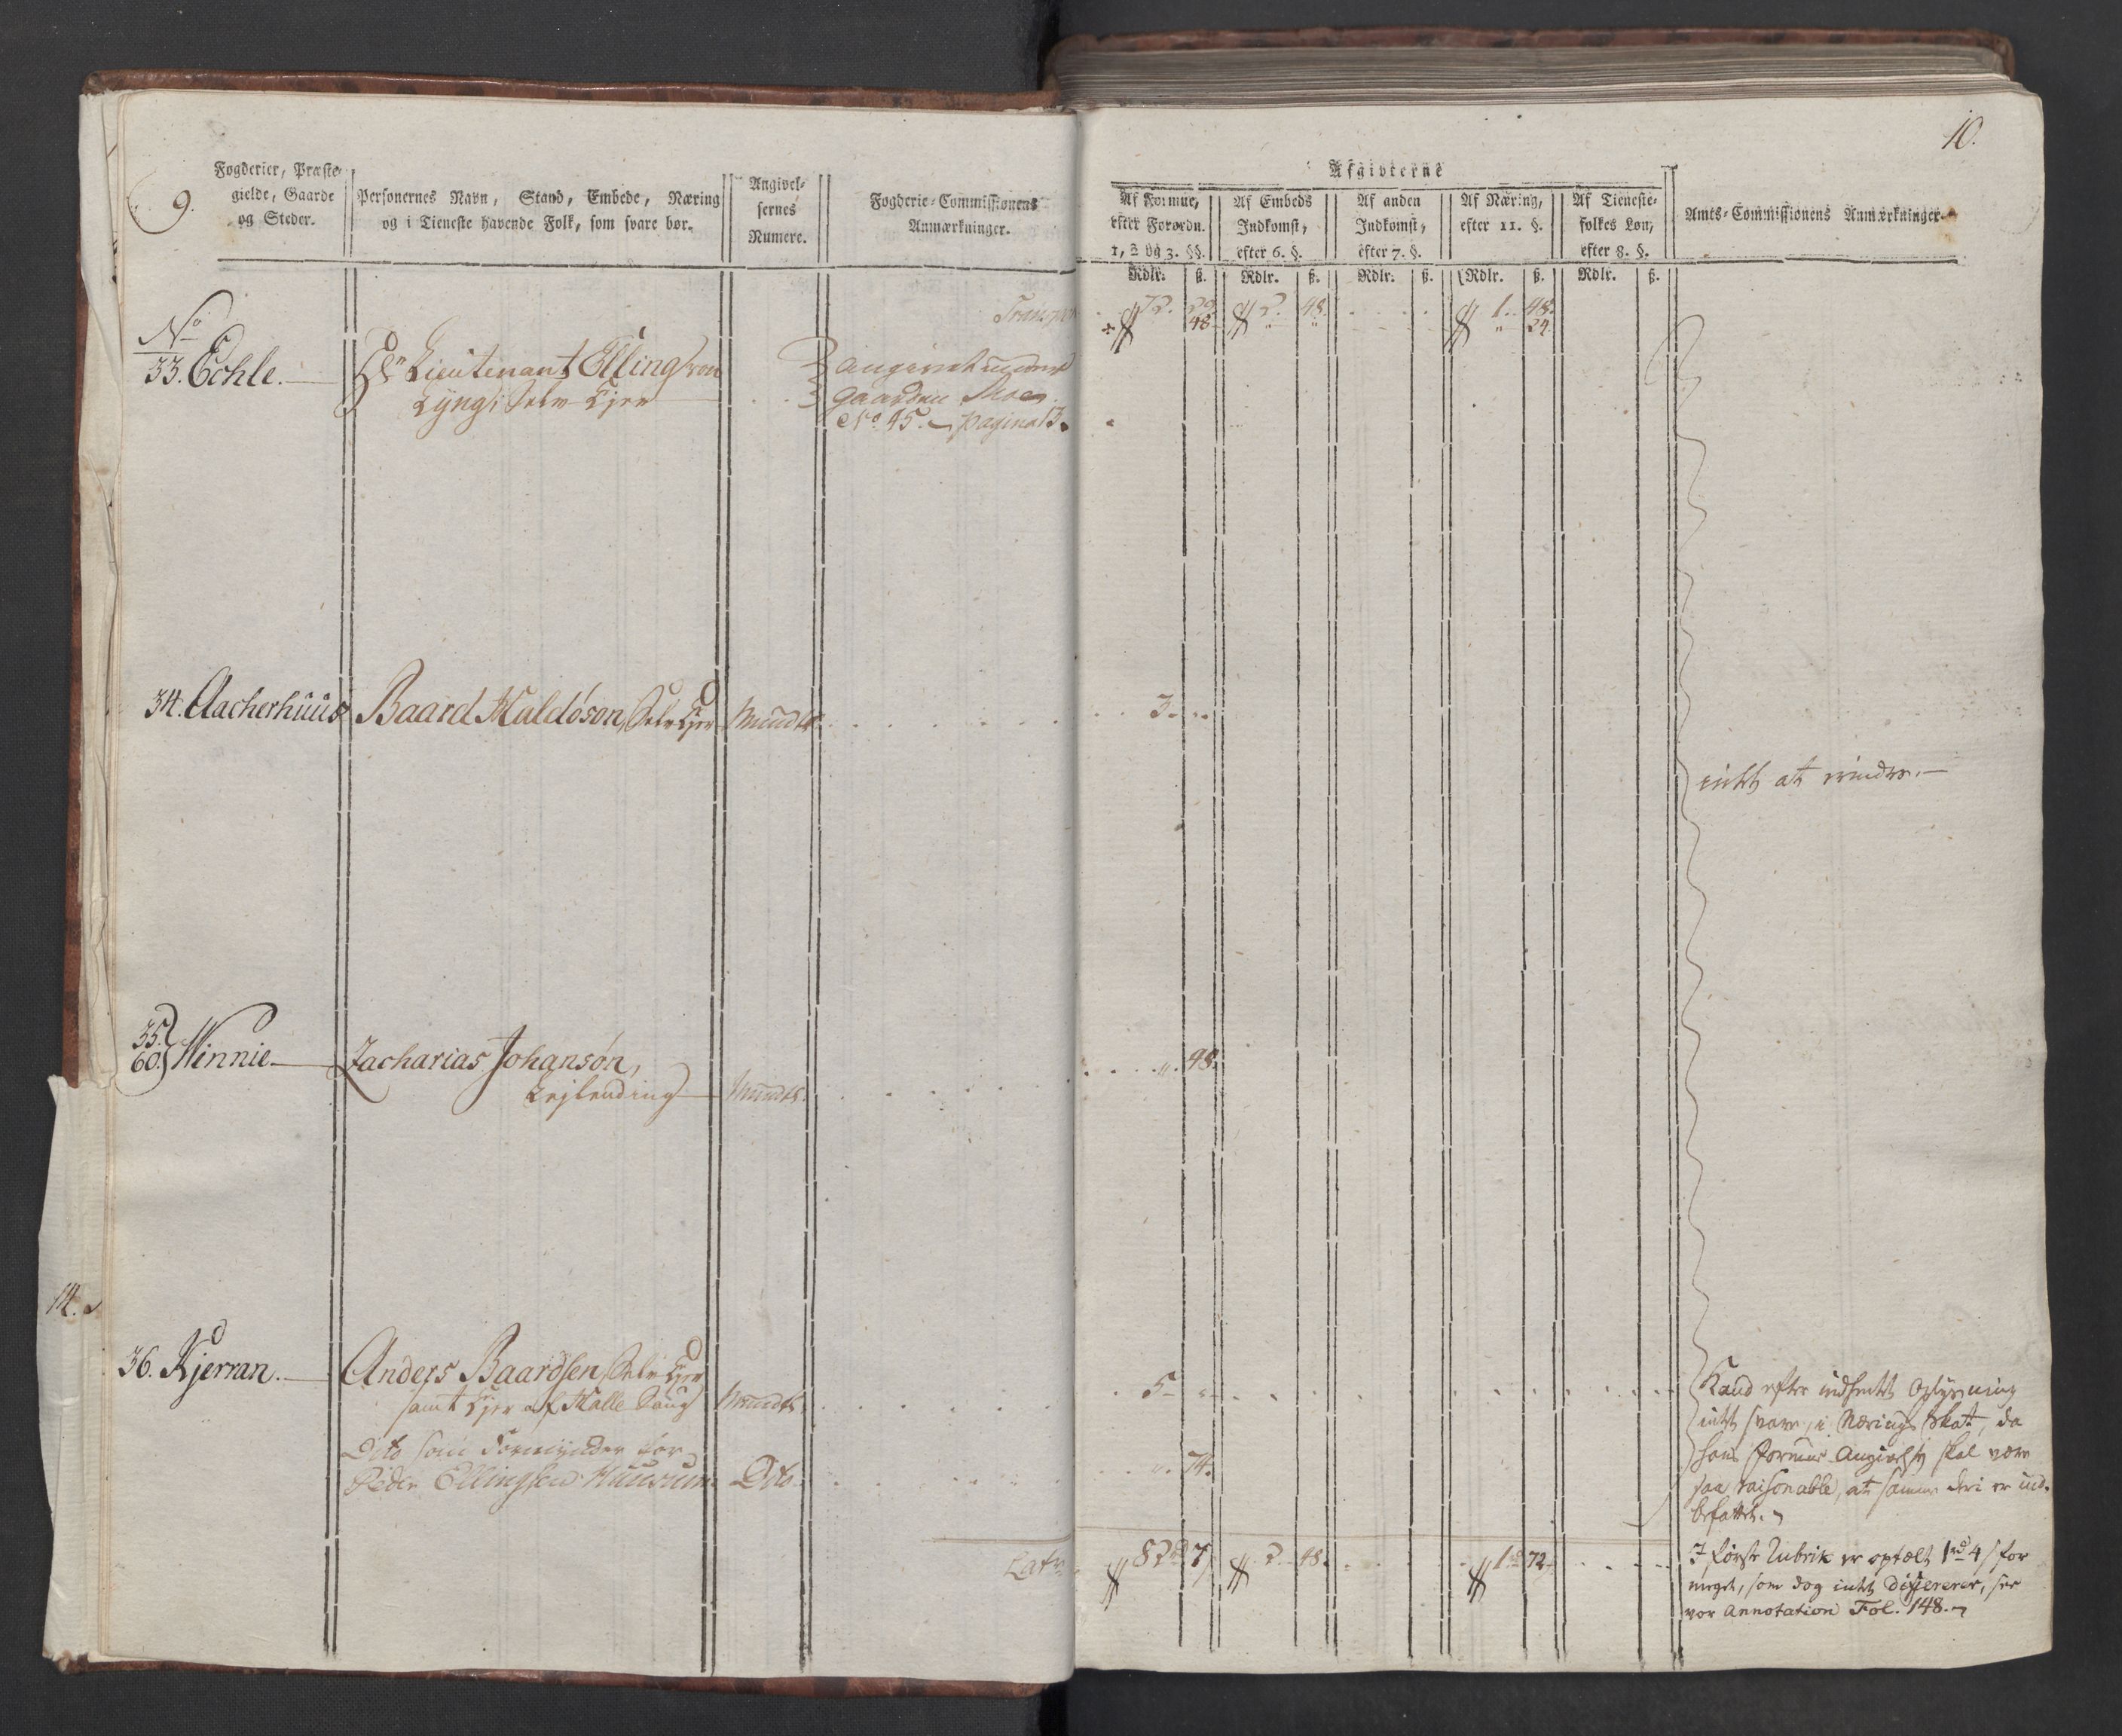 9.
Fogderier, Præste-
gielde, Gaarde
og Steder.
Personernes Navn, Stand, Embede, Næring
og i Tieneste havende Folk, som svare bør.
Angivel-
sernes
Numere.
Fogderie-Commissionens
Anmærkninger.
10.
Afgivterne
Af Formue,
efter Forordn.
1, 2 og 3. §§.
Af Embeds
Indkomst,
efter 6. §.
Af anden
Indkomst,
efter 7. §.
Af Næring,
efter 11. §.
Af Tieneste-
folkes Løn,
efter 8. §.
Amts-Commissionens Anmærkninger.
Rdlr. ß. Rdlr. ß. Rdlr. ß. Rdlr. ß. Rdlr. ß.
Transport 72. 2. 48. 1. 48.
48 24.
No
33. Echle. Lieutenant Elling von
Lyng, Selv Ejer
angivet under
gaarden Moen
No. 45. pagina 13.
34. Aacherhuus Baard Haldóson, Selv Ejer Mundtl. 3.
intet at erindre.
35.
60. Hinnie Zacharias Johansón, 48.
Lejlending Mundtl.
14.
36. Kjerran. Anders Baardsen, Selv Ejer
samt Ejer af Halle Saug Mundtl. 5
Dito som Formynder for
Peder Ellingsen Huusum Dito 74.
Kand efter indhentet Oplysning
intet svare i Nærings Skat, da
hans Formue Angivelse skal være
saa raisonable, at samme deri er ind-
befattet.
Latr. 82 7 2. 48. 1 72
I første Rubrik er optælt 1 rd 4 ß for
meget, som dog intet differerer, see
vor Annotation Fol. 148.